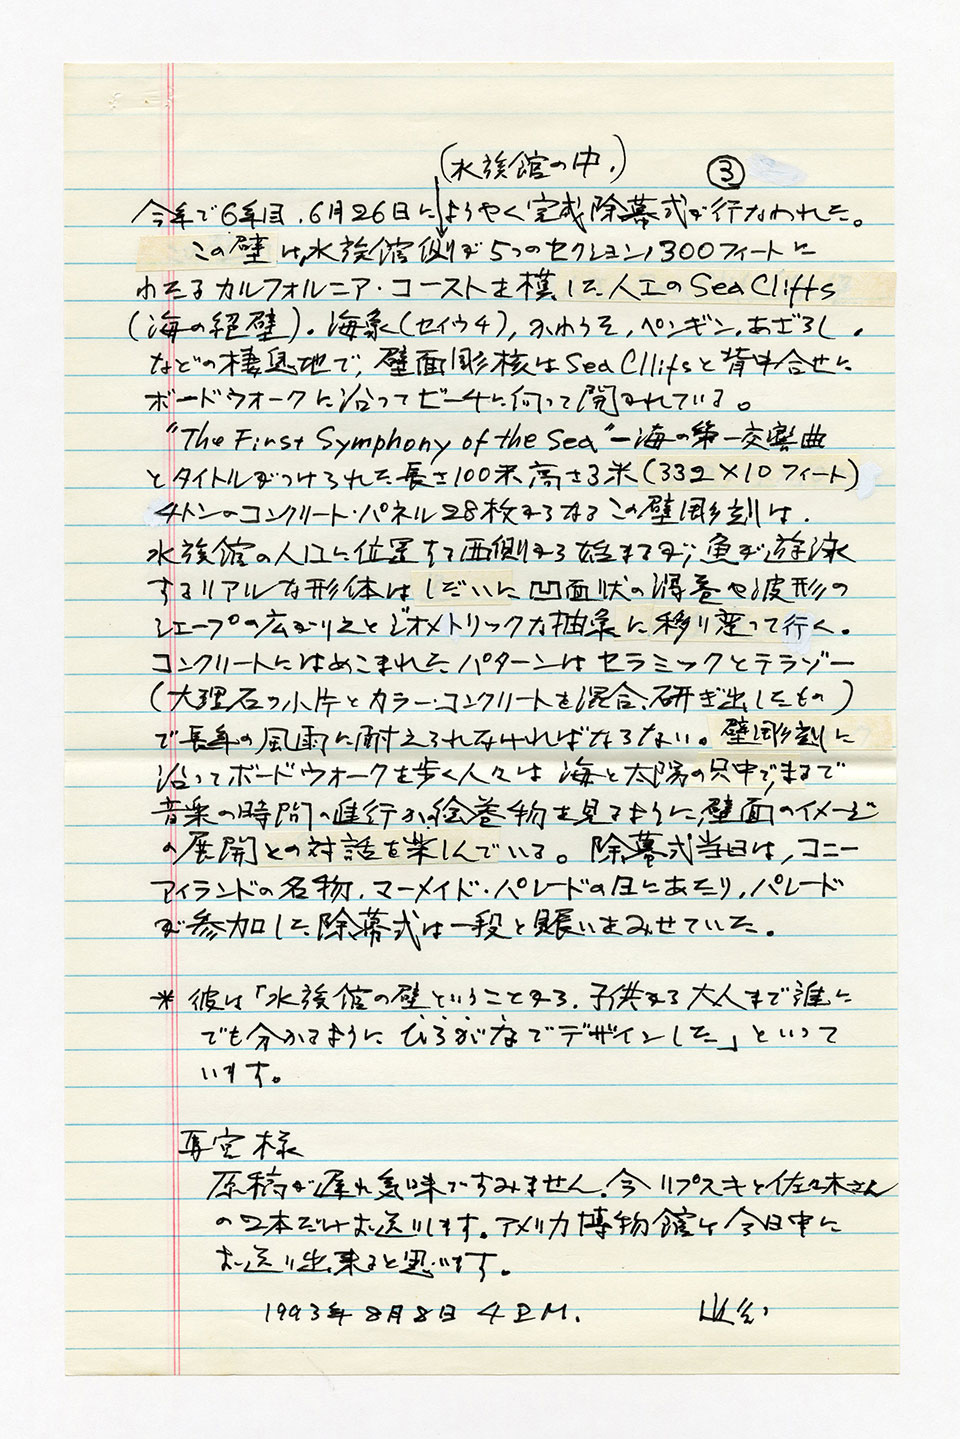 (水族館の中、)
③
今年で6年目、6月26日にようやく完成除幕式が行なわれた。
この壁は水族館側が5つのセクション、300フィートに
わたるカルフォルニア・コーストを模した人工のSea Cliffs
(海の絶壁)。海象(セイウチ)、かわうそ、ペンギン、あざらし、
などの棲息地で、壁面彫核はSea Cllifsと背中合せに
ボードウオークに沿ってビーチに向って開かれている。
"The First Symphony of the Sea"ー海の第一交響曲
とタイトルがつけられた長さ100米高さ3米(332×10フィート)
4トンのコンクリート・パネル28枚からなるこの壁彫刻は、
水族館の入口に位置する西側から始まるが、魚が遊泳
するリアルな形体はしだいに凹面状の渦巻や波形の
シェープの広がりえとジオメトリックな抽象に移り変って行く。
コンクリートにはめこまれたパターンはセラミックとテラゾー
(大理石の小片とカラー・コンクリートを混合、研ぎ出したもの)
で長年の風雨に耐えられなければならない。壁彫刻に
沿ってボードウォークを歩く人々は海と太陽の只中で、まるで
音楽の時間の進行か、絵巻物を見るように、壁面のイメージ
の展開との対話を楽しんでいる。除幕式当日は、コニー
アイランドの名物、マーメイド・パレードの日にあたり、パレード
が参加した除幕式は一段と賑いをみせていた。
* 彼は「水族館の壁ということから、子供から大人まで誰に
でも分かるようにひらがなでデザインした」といって
います。
宮様
原稿が遅れ気味ですみません。今リプスキと佐々木さん
の2本だけお送りします。アメリカ博物館も今日中に
お送り出来ると思います。
1993年8月8日 4 P.M.